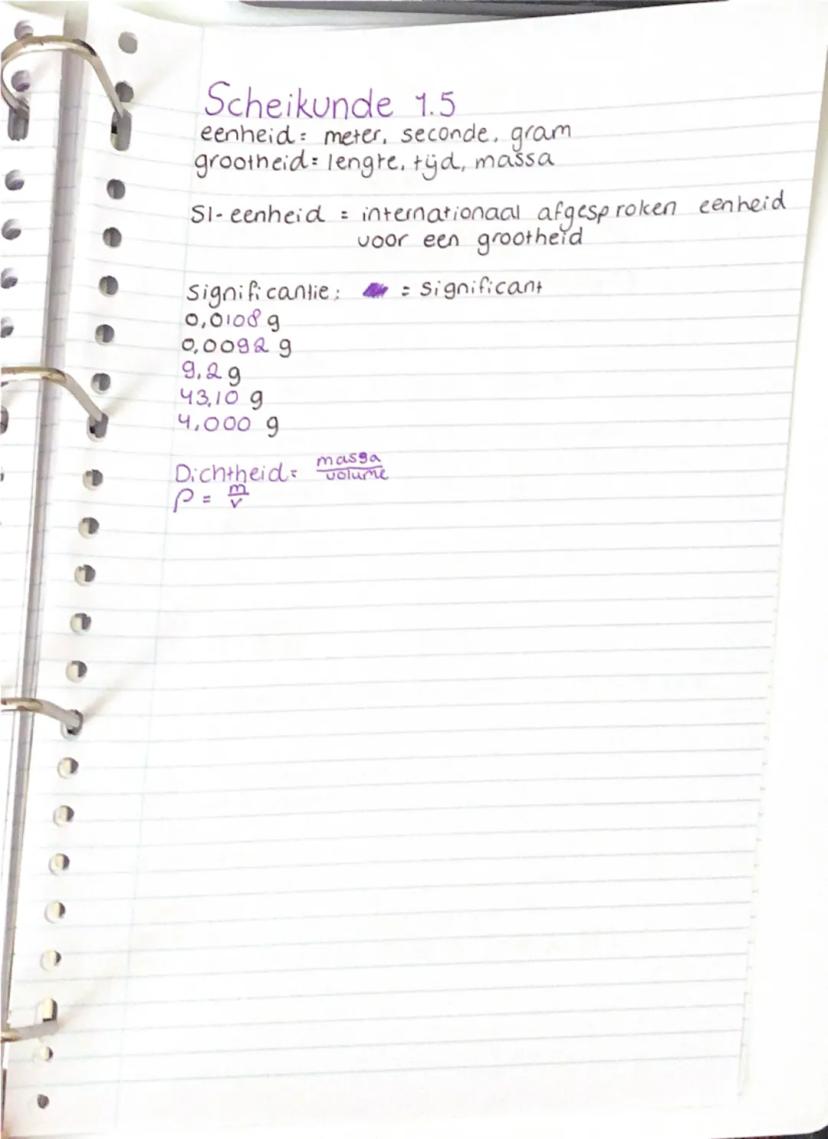 Scheikunde 1.5
eenheid= meter, seconde, gram
grootheid= lengte, tijd, massa
SI-eenheid = internationaal afgesproken eenheid
voor een grootheid
Significantie: = Significant
0,0108 g
0,0092 g
9,2 g
43,10 g
4,000 g
Dichtheid= massa/volume
ρ = m/v